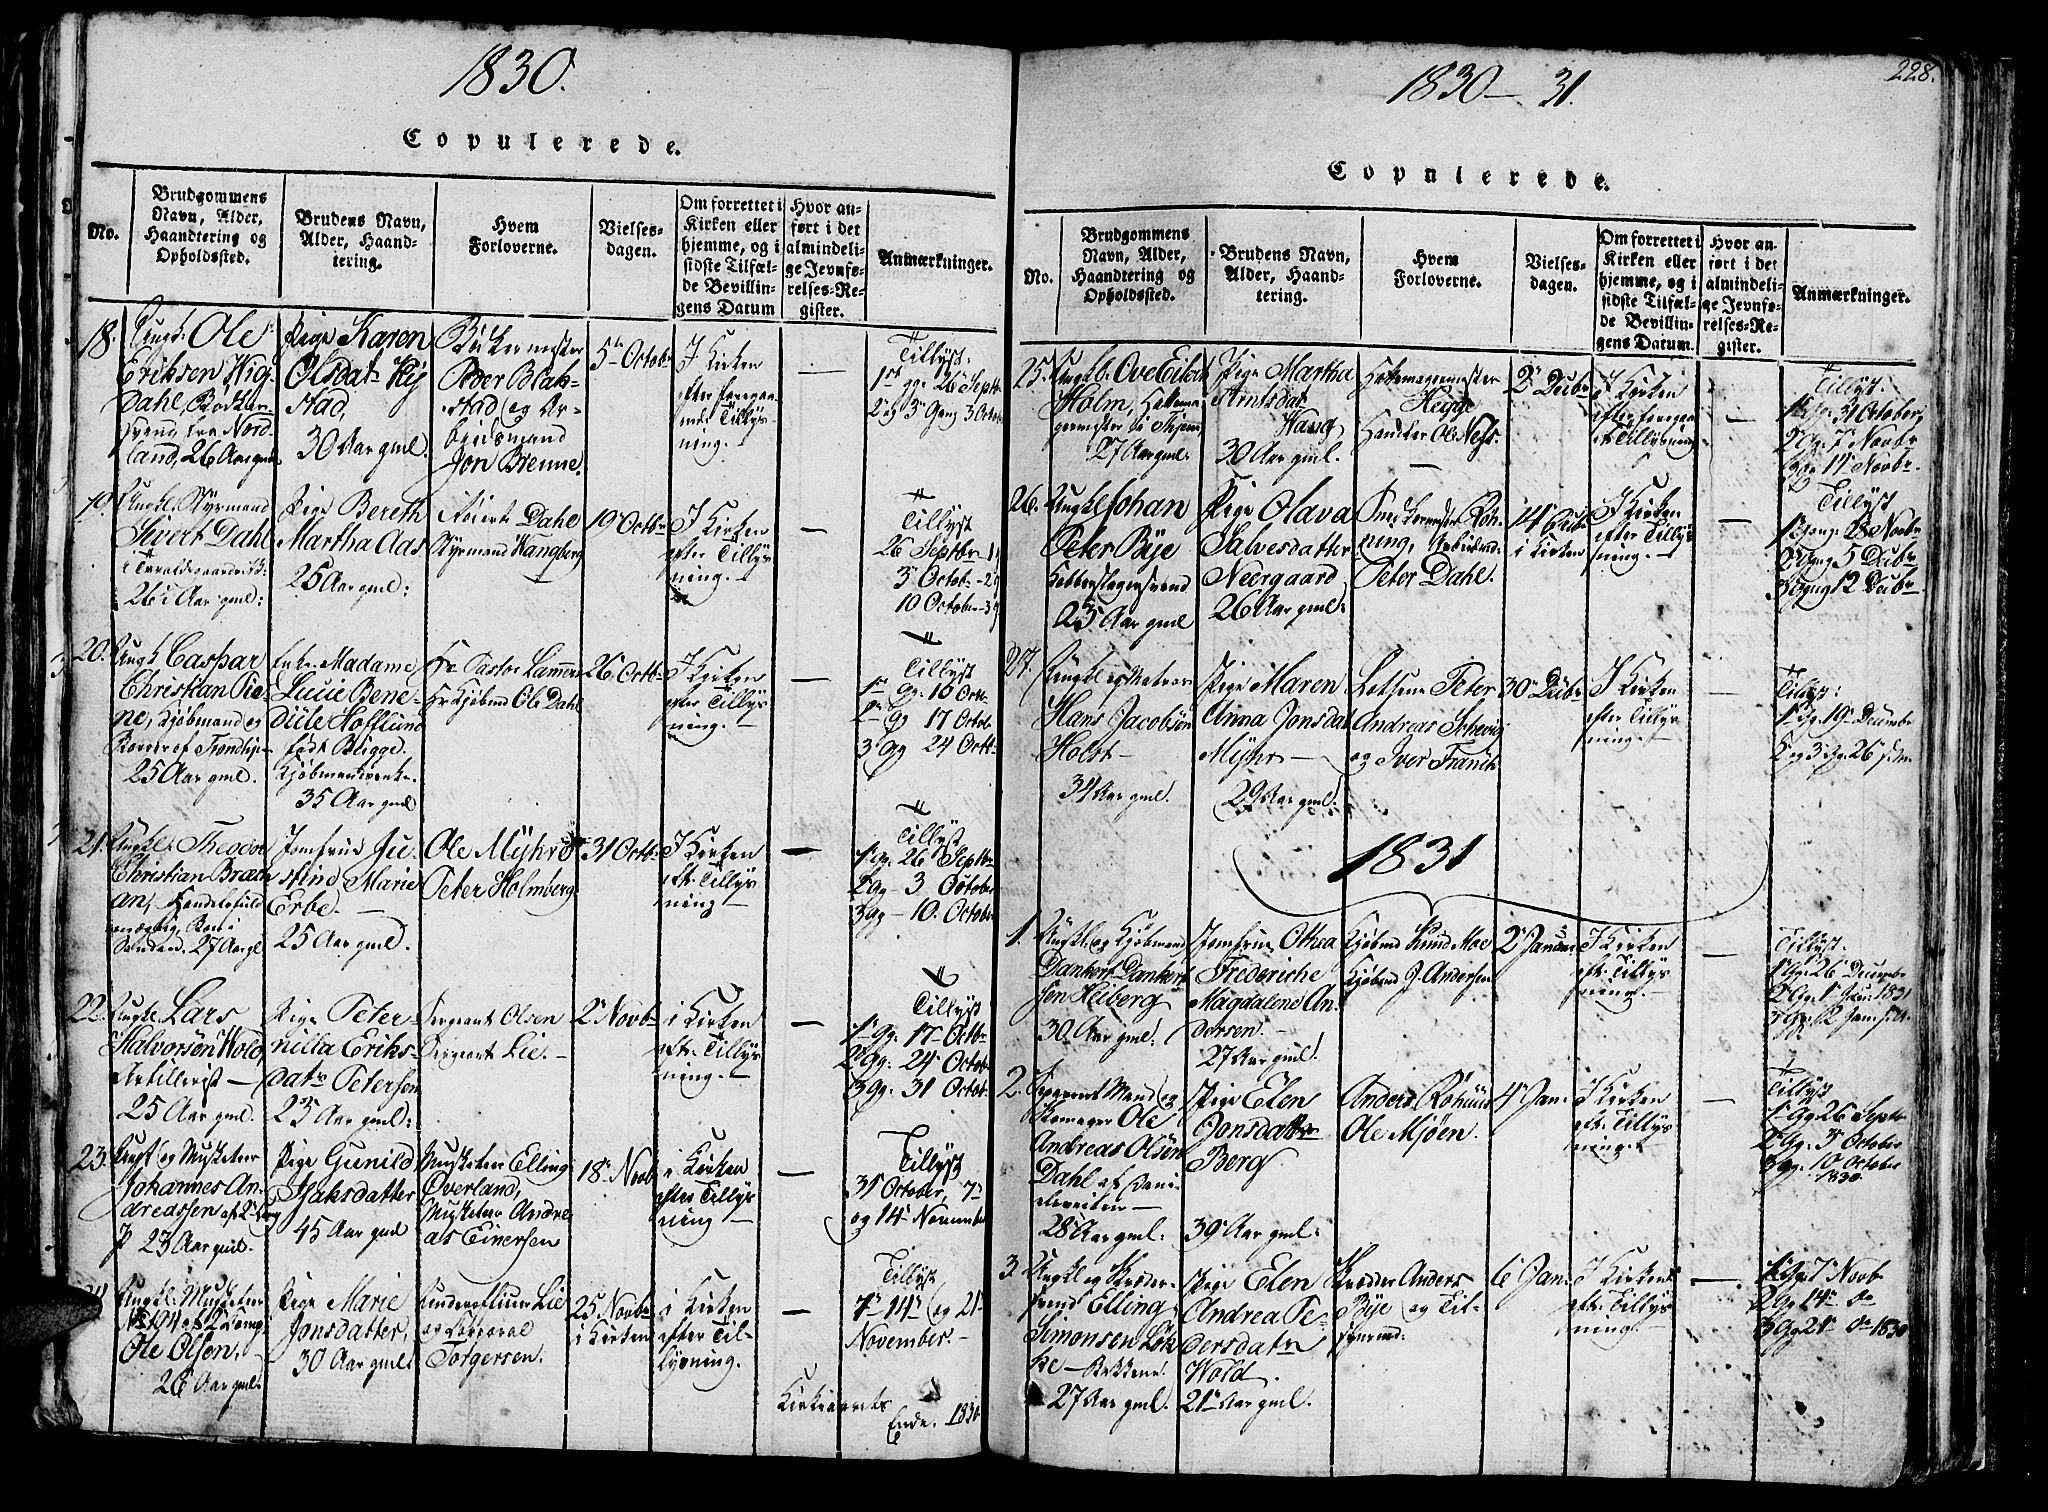 1830.
Copulerede.
No.
Brudgommens
Navn, Alder,
Haandtering og
Opholdssted.
Brudens Navn,
Alder, Haand-
tering.
Hvem
Forloverne.
Vielses-
dagen.
Om forrettet i
Kirken eller
hjemme, og i
sidste Tilfæl-
de Bevillin-
gens Datum
Hvor an-
ført i det
almindeli-
ge Jevnfø-
relses-Re-
gister.
Anmærkninger.
18.
Ungk: Ole
Eriksen Hig
Dahl,
fra Nord-
land, 26 Aar gml
Pige Karen
Olsdatr
stad,
30 Aar gml.
Peder Blak-
stad og Ar-
beidsmand
Jon Brenne.
5te Octobr
I Kirken
efter foregaa-
ning.
Tillyst:
1ste gg. 26 Septr
2 og 3 Gang 3 Octob
19.
Ungkl. Styrmand
Sivert Dahl
26 Aar gml:
Pige Bereth
Martha Aas
25 Aar gml:
Dahl
Styrmand Hangberg
19 Octbr
I Kirken
efter Tillys
ning.
Tillyst
26 Septbr - 1 g
3 Octob - 2 g
10 October - 3 g
20.
Ungk Caspar
Christian Rie-
ne, Kjøbmand og
25 Aar gml.
Enke Madame
Lucie Bene-
Hofflund
født Bligge.
Kjøbmandsenke.
35 Aar gml
Hr Pastor Lammers
Hr Kjøbmd Ole Dahl
26. Octb
I Kirken
efter Tillys
ning.
Tillyst
1 gg. 10 Octb
2 gg 17 Octob
3 gg 24 Octb
21.
Ungkl. Theodor
Christian
an,
27 Aar gl
Jomfrue Ju-
stine Marie
Erbe.
25 Aar gml.
Ole Myhre
Peter Holmberg
31 Octb
I Kirken
eft. Tillys
ning
Tillyst
1 gg. 26 Septbr
2 gg 3 October
3 gg - 10. October
22.
Ungk. Lars
Halvorsen Wold,
Artillerist
25 Aar gml.
Pige Peter-
nilla Eriks-
datr Petersen
23 Aar gml:
Sergeant Olsen
Sergeant Lie.
2 Novbr
i Kirken
eft. Tillys
ning.
Tillyst
1 gg. 17 Octbr
2 gg. 24 Octob
3 gg. 31 Octob
23.
Ungk og Musketeer
Johannes An-
dreassen af 2 Comp
23 Aar gml.
Pige Gunild
Isaksdatter
45 Aar gml
Musketeer Elling
Overland,
Musketeer Andre
as Einersen
18 Novb
i Kirken
efter Tillys
ning
Tillyst
31 October, 7
og 14 November
24
Ungkl. Musketeer
No 194 af 2 Comp
Ole Olsen,
26 Aar gml.
Pige Marie
Jonsdatter,
30 Aar gml
Lie
og Corporal
Torgersen.
25 Novbr
i Kirken
i Kirken
efter Til-
lysning.
Tillyst
7 14 og 21
November.
Kirkeaarets
Ende. 1830
1830 - 31.
228.
Copulerede.
No.
Brudgommens
Navn, Alder,
Haandtering og
Opholdssted.
Brudens Navn,
Alder, Haand-
tering.
Hvem
Forloverne.
Vielses-
dagen.
Om forrettet i
Kirken eller
hjemme, og i
sidste Tilfæl-
de Bevillin-
gens Datum.
Hvor an-
ført i det
almindeli-
ge Jevnfø-
relses-Re-
gister.
Anmærkninger.
25.
Ungk. Ove
Holm,
27 Aar gml.
Pige Martha
Arntsdat
Haug
30 Aar gml.
Hegge
Handler Ole
2 Decbr
I Kirken
efter foregaa
Tillysning
Tillyst
1 gg. 31 October,
2 gg. 7 Novbr
3 gg 14 Novbr.
26.
Ungk Johan
Peter Bye
Kobberslagersvend
25 Aar gml
Pige Olava
Salvesdatter
Neergaard
26 Aar gml:
ning, Arbeidsmd.
Peter Dahl.
14 Decbr
i Kirken
I Kirken
efter Tillys
ning.
Tillyst
1 gang 28 Novbr
2 gang 5 Decbr
3 gang 12 Decbr
27.
Ungkl og Matros
Hans Jacobsen
Holst
34 Aar gml.
Pige Maren
Anna Jonsdat
Myhr
29 Aar gml.
Peter
Andreas
og Iver
30 Decbr
I Kirken
efter Tillys
ning.
Tillyst:
1 gg. 19 Decembr
2 og 3 gg. 26
1831
1.
Ungkl. og Kjøbmand
Dankert Dankert-
sen Heiberg
30 Aar gml.
Jomfrue Othea
Frederiche
Magdalene An-
dersen.
27 Aar gml.
Kjøbmd Knud Moe
Kjøbmd J. Andersen
2 Januar
I Kirken
eft. Tillys
ning.
Tillyst.
1 gg. 26 Decembr
2 gg. 1 Jan: 1831
3 gg. 2 Jan. s. A.
2.
Separeret Mand og
Skomager Ole
Andreas Olsen
Dahl af
28 Aar gml:
Pige Elen
Jonsdatter
Berg
39 Aar gml:
Anders
Ole Mjøen.
4 Jan.
I Kirken
eft. Tillys
ning.
Tillyst
1 gg 26 Septr
2 gg. 3 October
3 gg. 10 October
1830.
3.
Ungkl og Skræder-
svend Elling
Simonsen Løk-
ke
27 Aar gml.
Pige Elen
Andrea Pe-
dersdatr
Wold.
21 Aar gml.
Skræder Anders
Bye og
6 Jan.
I Kirken
eft. Tillys
ning.
1 gg 7 Novb
2 gg 14 do
3 gg 21 do 1830